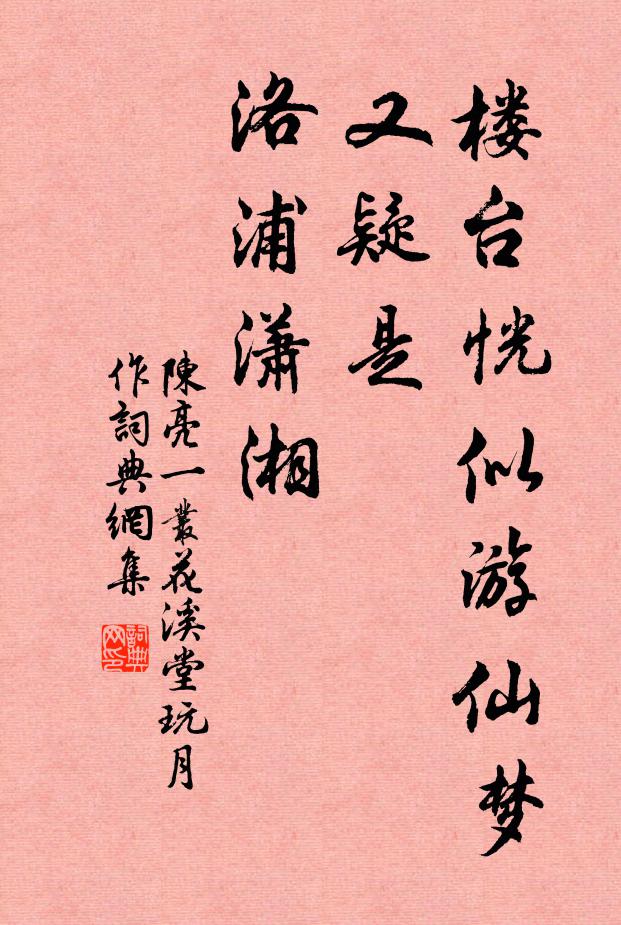 楼台恍似游仙梦
又疑是
洛浦潇湘
陳亮一叢花溪堂玩月
作詞典網集
詞典
网印